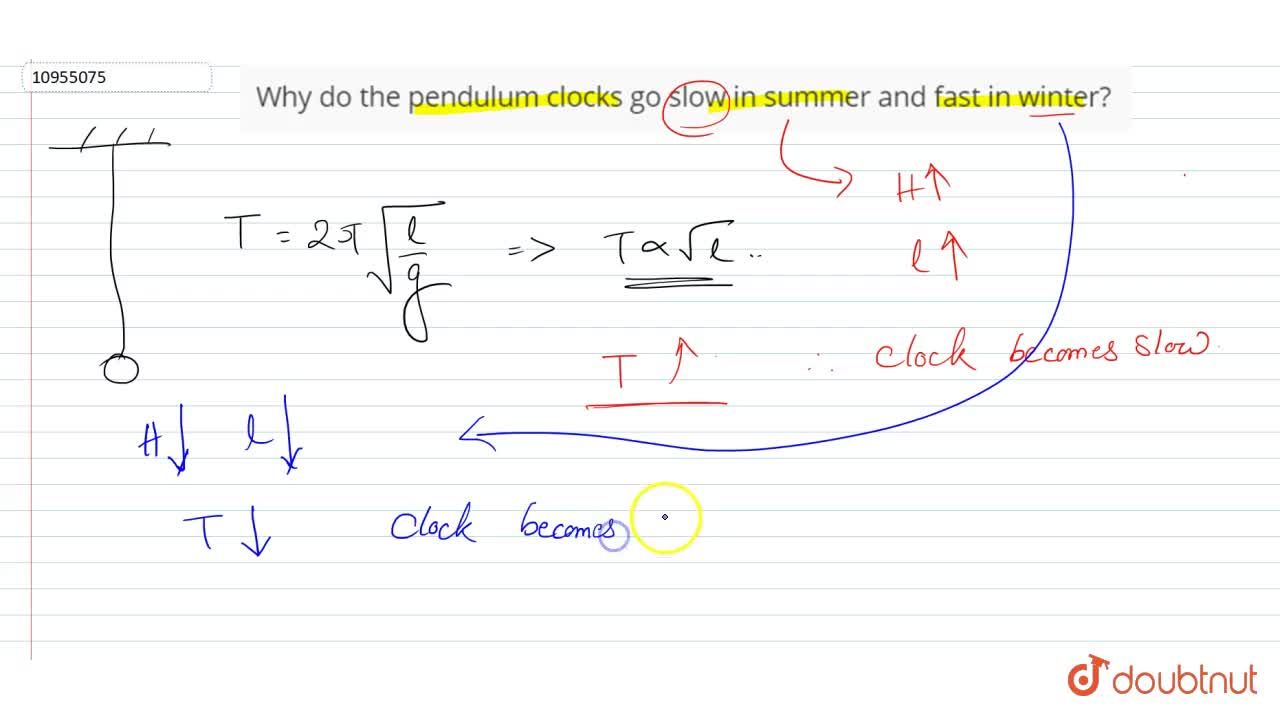 10955075
Why do the pendulum clocks go slow in summer and fast in winter?
H↑
T = 2π√(l/g) => T ∝ √l ..
l↑
T ↑ ∴ Clock becomes slow.
H↓ l↓
T ↓ Clock becomes
doubtnut